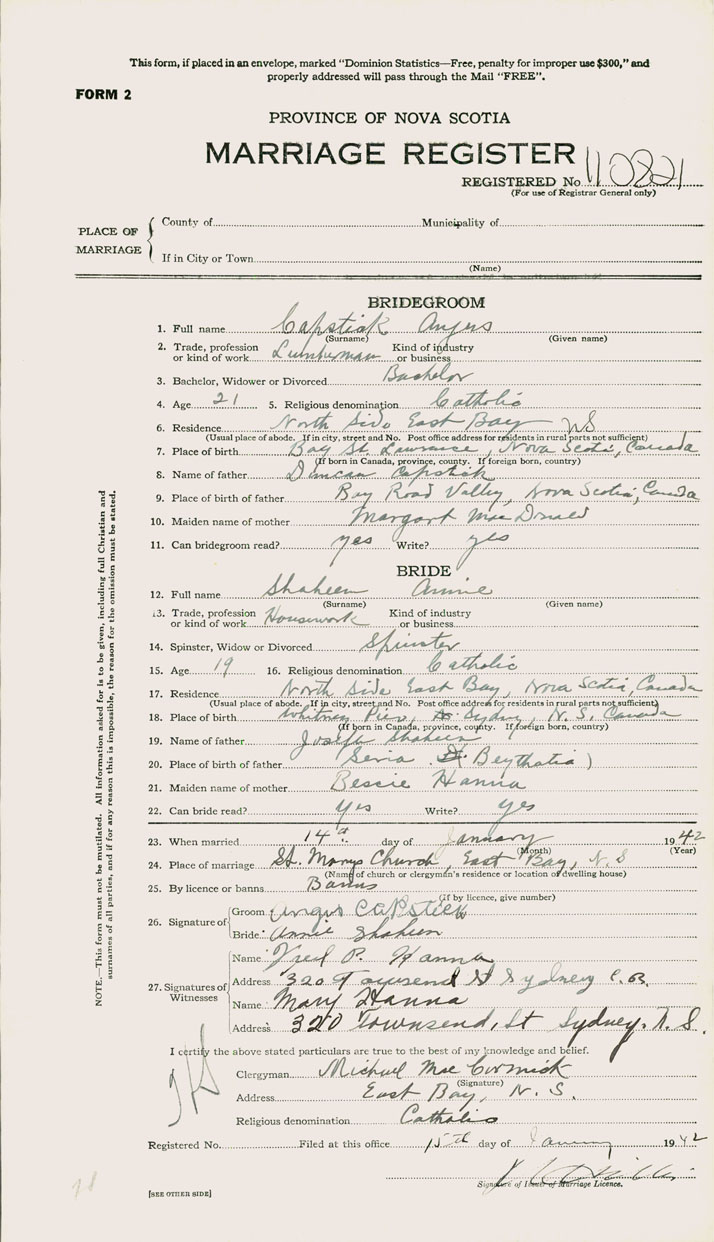 This form, if placed in an envelope, marked "Dominion Statistics—Free, penalty for improper use $300," and
properly addressed will pass through the Mail "FREE".
FORM 2
PROVINCE OF NOVA SCOTIA
MARRIAGE REGISTER
REGISTERED No 110821
(For use of Registrar General only)
PLACE OF MARRIAGE
County of Municipality of
If in City or Town
(Name)
BRIDEGROOM
1. Full name Capstick Angus
(Surname) (Given name)
2. Trade, profession or kind of work Lumberman Kind of industry or business
3. Bachelor, Widower or Divorced Bachelor
4. Age 21 5. Religious denomination Catholic
6. Residence North Side East Bay NS
(Usual place of abode. If in city, street and No. Post office address for residents in rural parts not sufficient)
7. Place of birth Bay St. Lawrence, Nova Scotia, Canada
(If born in Canada, province, county. If foreign born, country)
8. Name of father Duncan Capstick
9. Place of birth of father Bay Road Valley, Nova Scotia, Canada
10. Maiden name of mother Margart MacDonald
11. Can bridegroom read? yes Write? yes
BRIDE
12. Full name Shaheen Annie
(Surname) (Given name)
13. Trade, profession or kind of work Housework Kind of industry or business
14. Spinster, Widow or Divorced Spinster
15. Age 19 16. Religious denomination Catholic
17. Residence North Side East Bay, Nova Scotia, Canada
(Usual place of abode. If in city, street and No. Post office address for residents in rural parts not sufficient)
18. Place of birth Whitney Pier, Sydney, N.S. Canada
(If born in Canada, province, county. If foreign born, country)
19. Name of father Joseph Shaheen
20. Place of birth of father Seria Beythatia)
21. Maiden name of mother Bessie Hanna
22. Can bride read? yes Write? yes
23. When married 14th day of January 1942
(Month) (Year)
24. Place of marriage St. Marys Church, East Bay, N.S
(Name of church or clergyman's residence or location of dwelling house)
25. By licence or banns Banns
(If by licence, give number)
26. Signature of
Groom Angus Capstick
Bride Annie Shaheen
27. Signatures of Witnesses
Name Fred P. Hanna
Address 320 Townsend St Sydney C.B.
Name Mary Hanna
Address 320 Townsend, St Sydney, N.S.
I certify the above stated particulars are true to the best of my knowledge and belief.
Clergyman Michael MacCormick
(Signature)
Address East Bay, N.S.
Religious denomination Catholic
Registered No. Filed at this office 15th day of January 1942
Signature of Issuer of Marriage Licence.
[SEE OTHER SIDE]
NOTE.—This form must not be mutilated. All information asked for is to be given, including full Christian and
surnames of all parties, and if for any reason this is impossible, the reason for the omission must be stated.